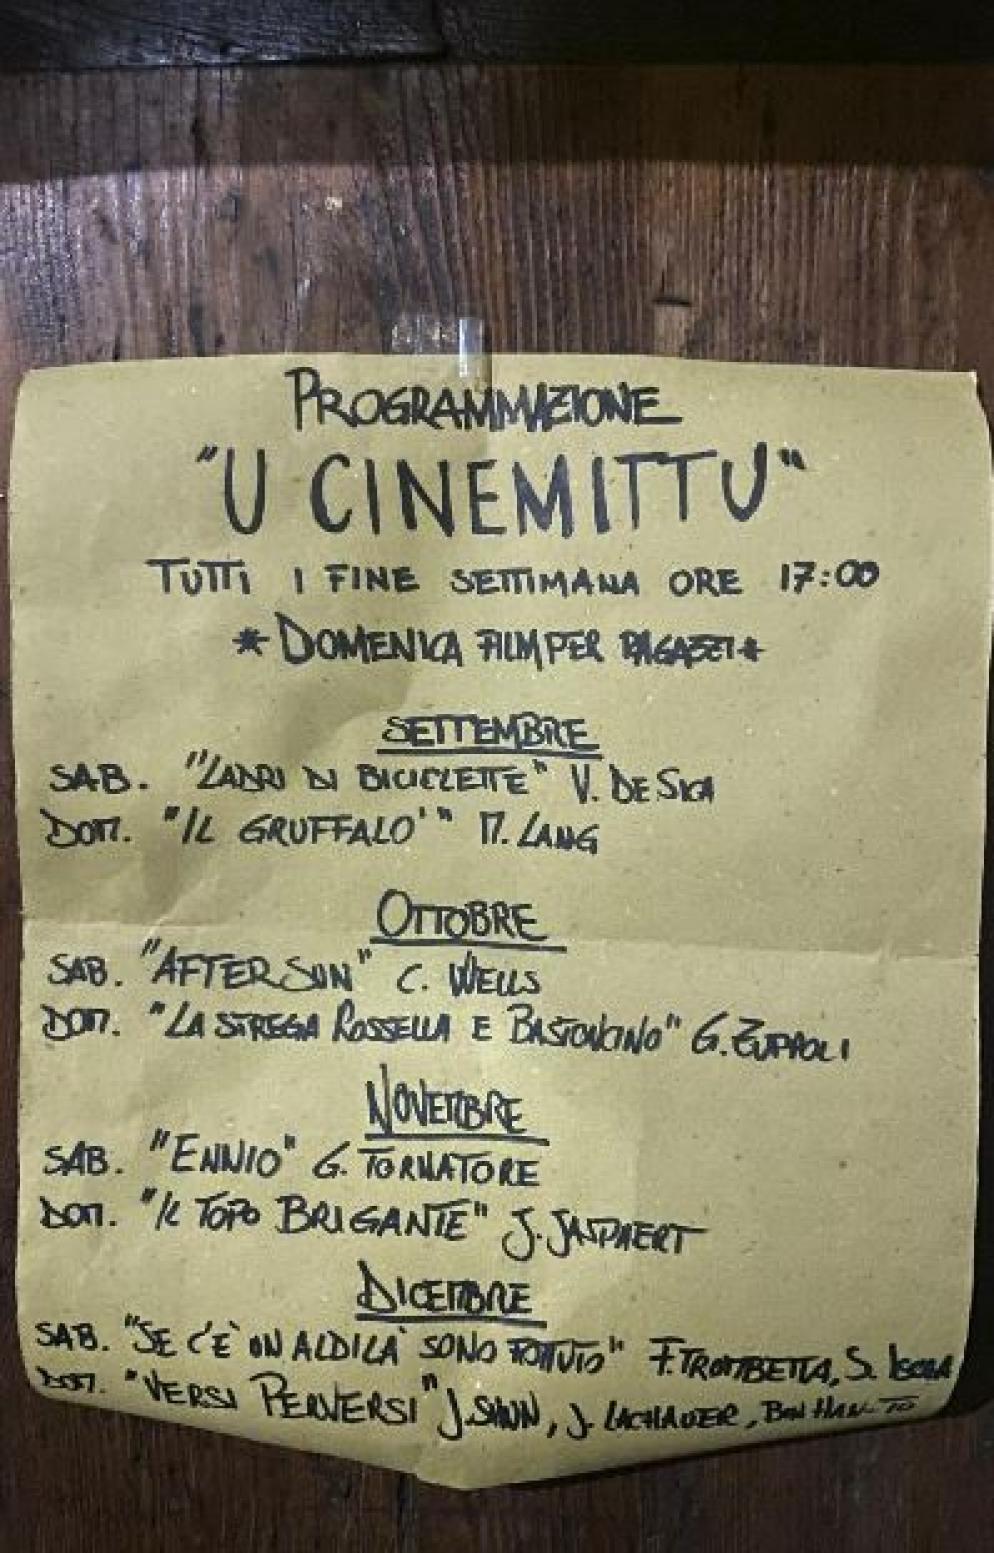 PROGRAMMAZIONE
"U CINEMITTU"
TUTTI I FINE SETTIMANA ORE 17:00
*DOMENICA FILM PER RAGAZZI*
SETTEMBRE
SAB. "LADRI DI BICICLETTE" V. DE SICA
DOM. "IL GRUFFALO'" M. LANG
OTTOBRE
SAB. "AFTERSUN" C. WELLS
DOM. "LA STREGA ROSSELLA E BASTONCINO" G. ZUPAOLI
NOVEMBRE
SAB. "ENNIO" G. TORNATORE
DOM. "IL TOPO BRIGANTE" J. JASPAERT
DICEMBRE
SAB. "SE C'È UN ALDILÀ SONO FOTTUTO" F. TROMBETTA, S. ISOLA
DOM. "VERSI PERVERSI" J. , J. LACHAUER, BIN HAN-TO